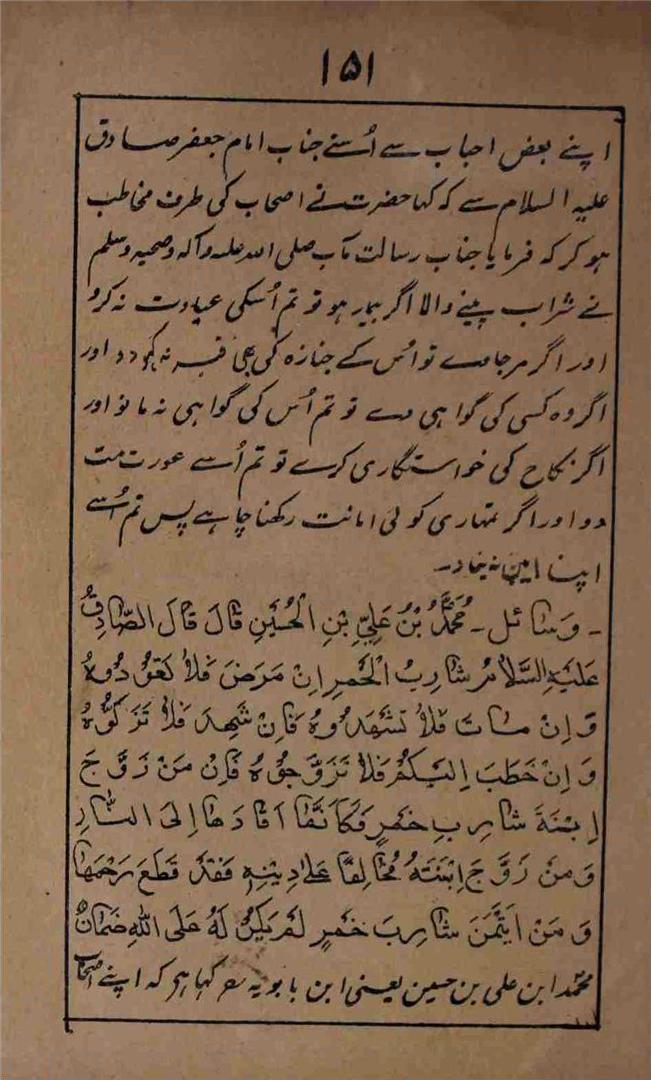 ۱۵۱
اپنے بعض احباب سے اُسنے جناب امام جعفر صادق
علیہ السلام سے کہ کہا حضرت نے اصحاب کی طرف مخاطب
ہو کر کہ فرمایا جناب رسالت مآب صلی اللہ علیہ وآلہ وصحبہ وسلم
نے شراب پینے والا اگر بیمار ہو تو تم اُسکی عیادت نہ کرو
اور اگر مرجاوے تو اُس کے جنازہ کی بھی قبر نہ کھودو اور
اگر وہ کسی کی گواہی دے تو تم اُس کی گواہی نہ مانو اور
اگر نکاح کی خواستگاری کرے تو تم اُسے عورت مت
دو اور اگر تمہاری کوئی امانت رکھنا چاہے پس تم اُسے
اپنا امین نہ بناؤ۔
۔ وَسَائل ۔ مُحَمَّدُ بْنُ عَلِيِّ بْنِ الْحُسَيْنِ قَالَ قَالَ الصَّادِقُ
عَلَيْهِ السَّلَامُ شَارِبُ الْخَمْرِ اِنْ مَرَضَ فَلَا تَعُوْدُوهُ
وَاِنْ مَاتَ فَلَا تَشْهَدُوهُ فَاِنْ شَهِدَ فَلَا تَزَكُّوهُ
وَاِنْ خَطَبَ اِلَيْكُمْ فَلَا تَزَوِّجُوهُ فَاِنْ مَنْ زَوَّجَ
اِبْنَةَ شَارِبِ خَمْرٍ فَكَاَنَّمَا اَقَادَهَا اِلَى النَّارِ
وَمَنْ زَوَّجَ اِبْنَتَهُ مُخَالِفًا عَلٰى دِيْنِهٖ فَقَدْ قَطَعَ رَحْمَهَا
وَمَنِ ايْتَمَنَ شَارِبَ خَمْرٍ لَمْ يَكُنْ لَهُ عَلَى اللهِ ضَمَانٌ
محمّد ابن علی بن حسین یعنی ابن بابویہ سے کہا ہے کہ اپنے اصحاب